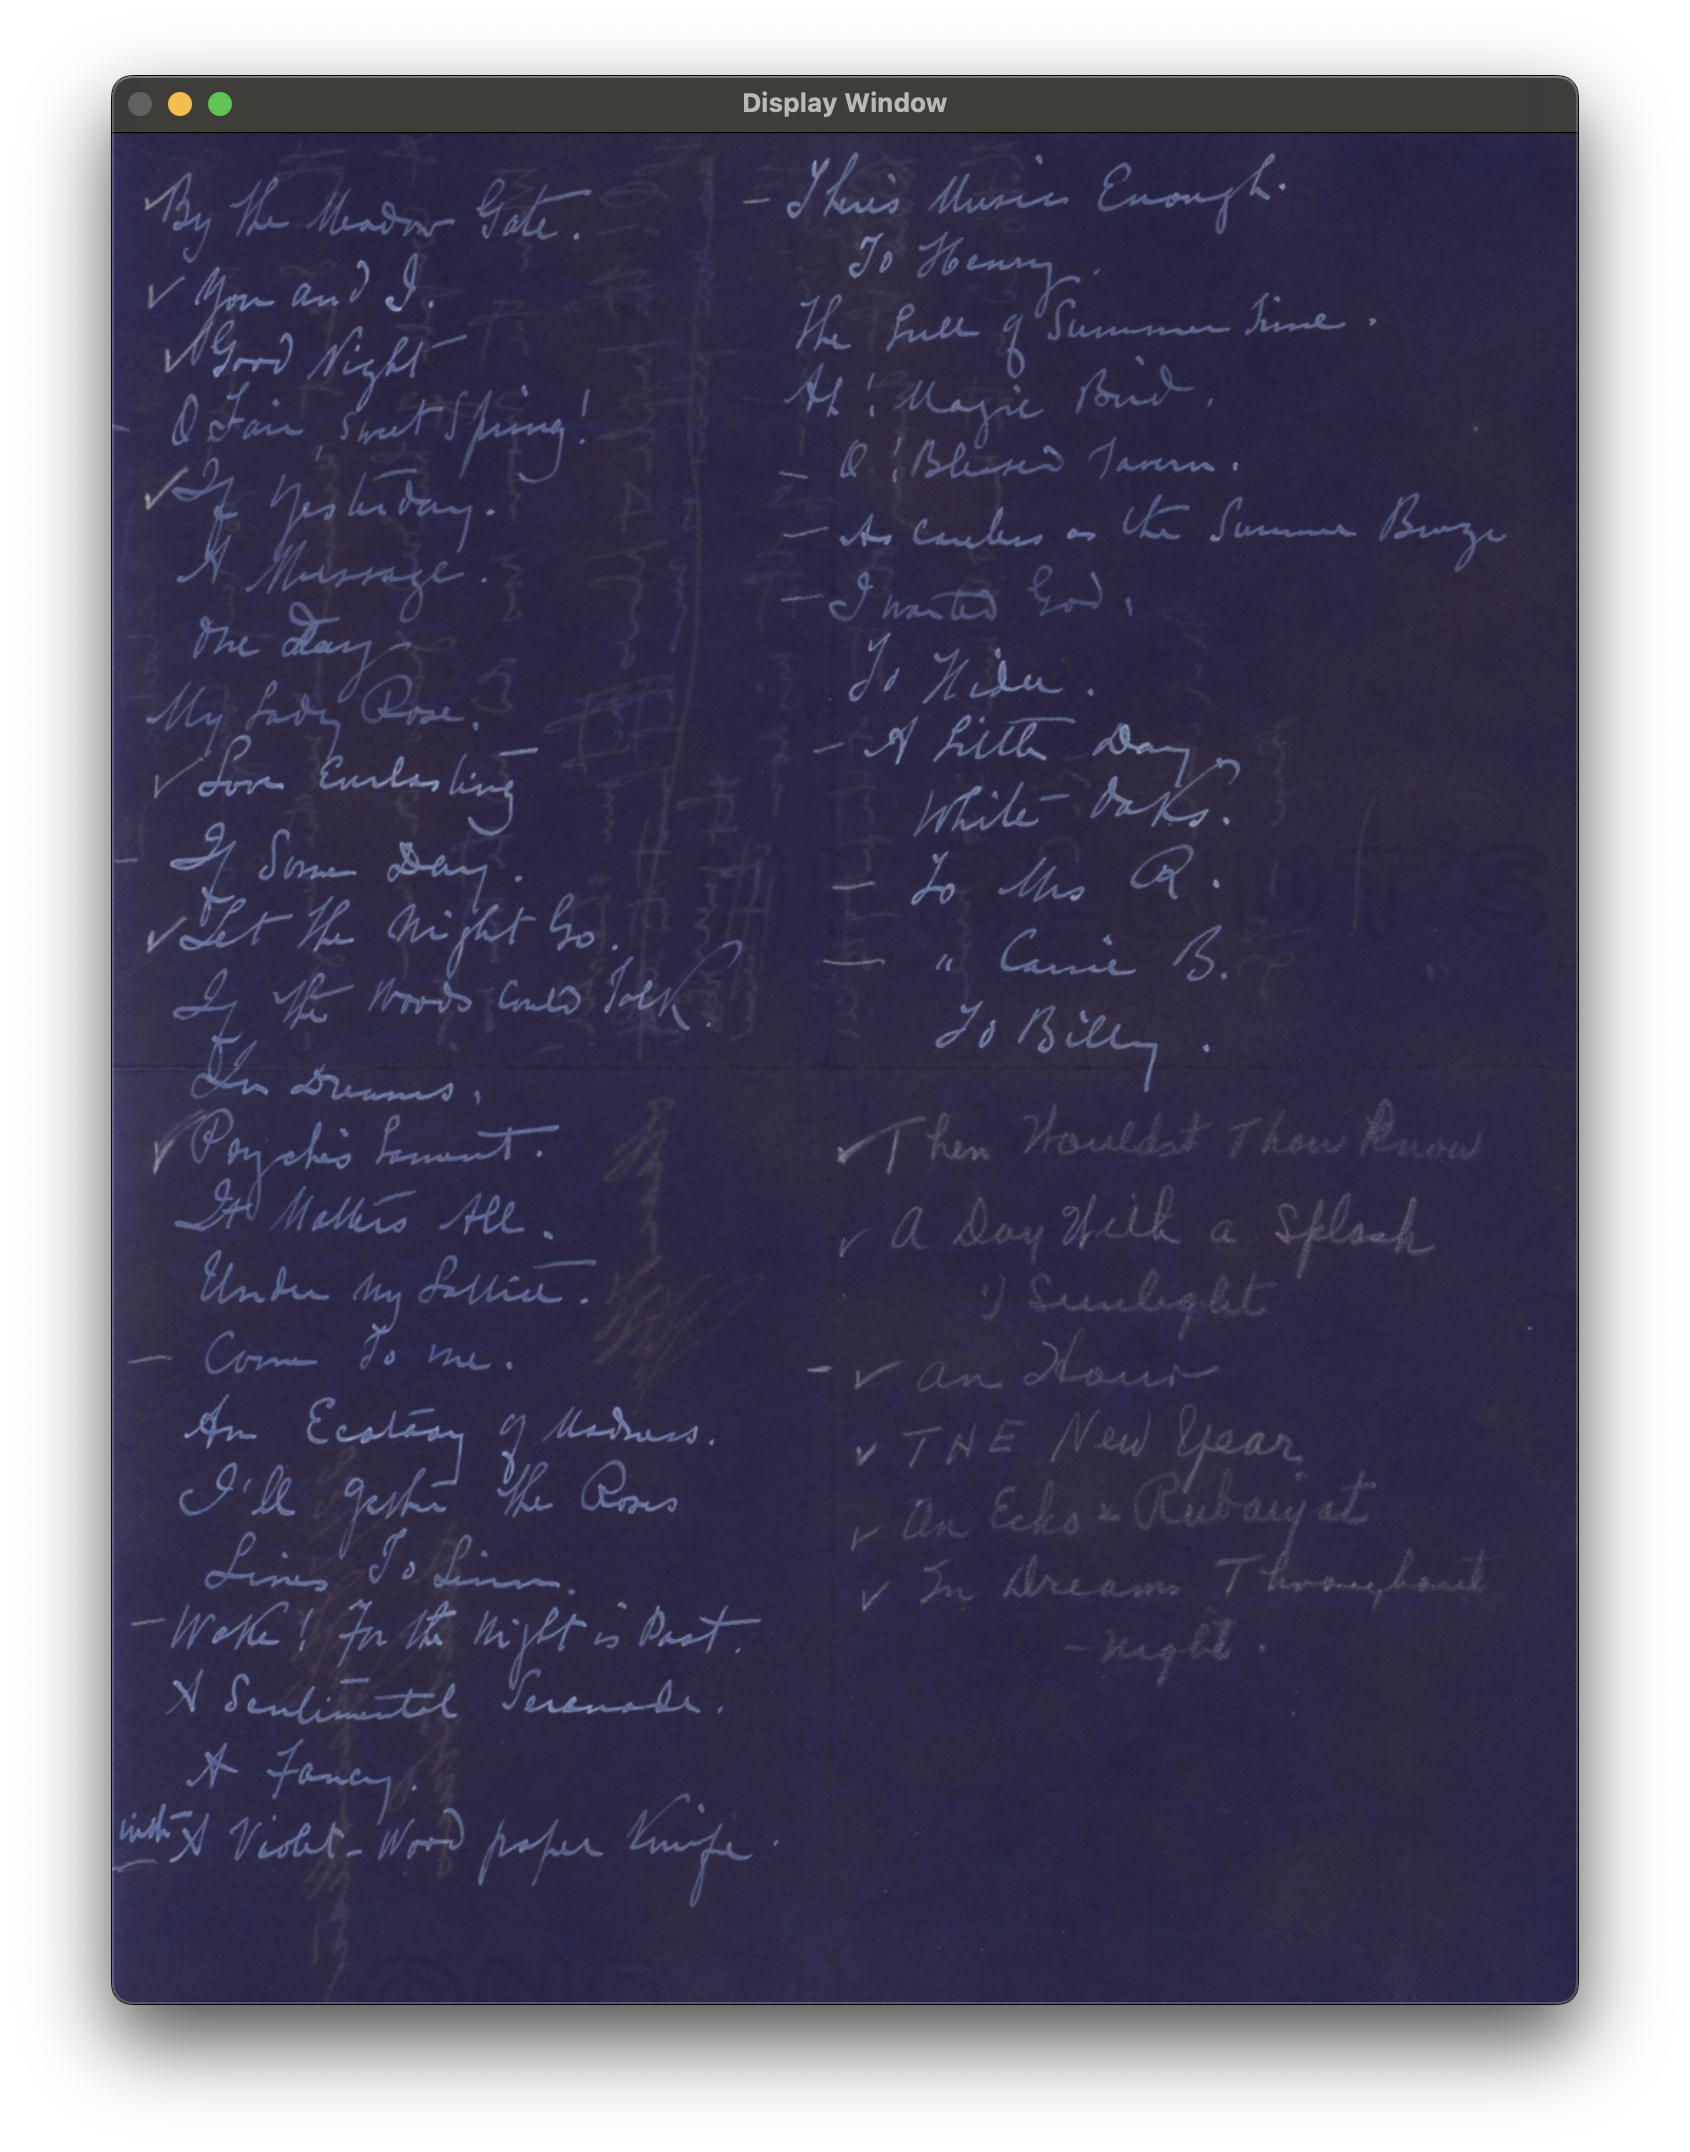 Display Window
✓ By the Meadow Gate.
✓ You and I.
✓ Good Night
- O Fair, Sweet Spring!
✓ If Yesterday.
A Message.
One Day
My Lady Rose.
✓ Love Everlasting
- If Some Day.
✓ Let the Night Go.
If the Woods Could Talk.
In Dreams.
✓ Psyche's Lament.
It Matters All.
Under My Lattice.
- Come To me.
An Ecstasy of Madness.
I'll gather the Roses
Lines To Linn.
- Wake! For the Night is Past.
A Sentimental Serenade.
A Fancy.
- with A Violet-Wood paper Knife.
- There's Music Enough.
To Henry.
The Lull of Summer Time.
Ah! Magic Bird.
- O! Blessed Tavern.
- As Careless as the Summer Breeze
- I wanted God.
To
- A Little Day.
White Oaks.
- To Mrs R.
- " Carrie B.
To Billy.
✓ Then Wouldst Thou Know
✓ A Day With a Splash
Sunlight
- ✓ An Hour
✓ THE New Year
✓ An Echo - Rubaiyat
✓ In Dreams Throughout
- night.